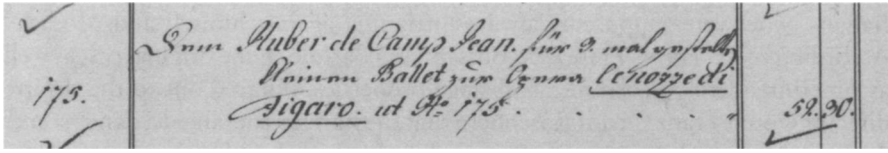 Dem Huber de Camp Jean. für 3. mal gestellte
kleinen Ballet zur Opera le nozze di
175. Figaro. ut No 175 . . . . . 52. 30.